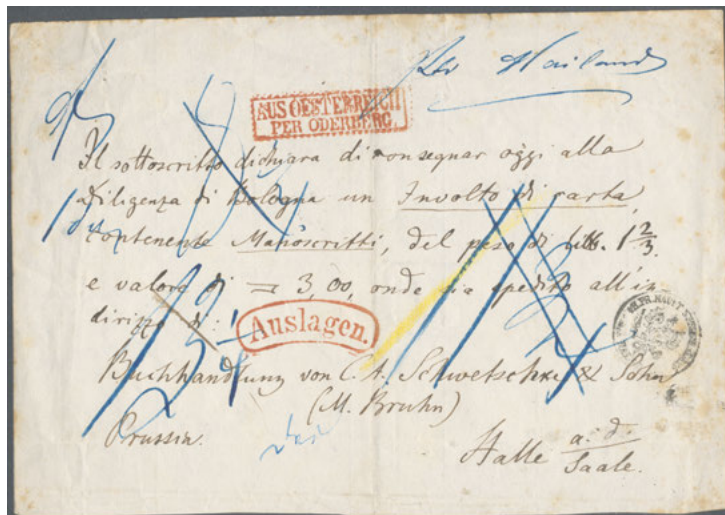 Mailand
AUS OESTERREICH
PER ODERBERG.
Il sottoscritto dichiara di consegnar oggi alla
Diligenza di Bologna un Involto di carta,
contenente Manoscritti, del peso di 1 2/3.
e valore di = 3,00, onde sia spedito all'in
dirizzo di:
Auslagen.
Buchhandlung von C. A. Schwetschke & Sohn
(M. Bruhn)
Prussia.
Halle a. d. Saale.